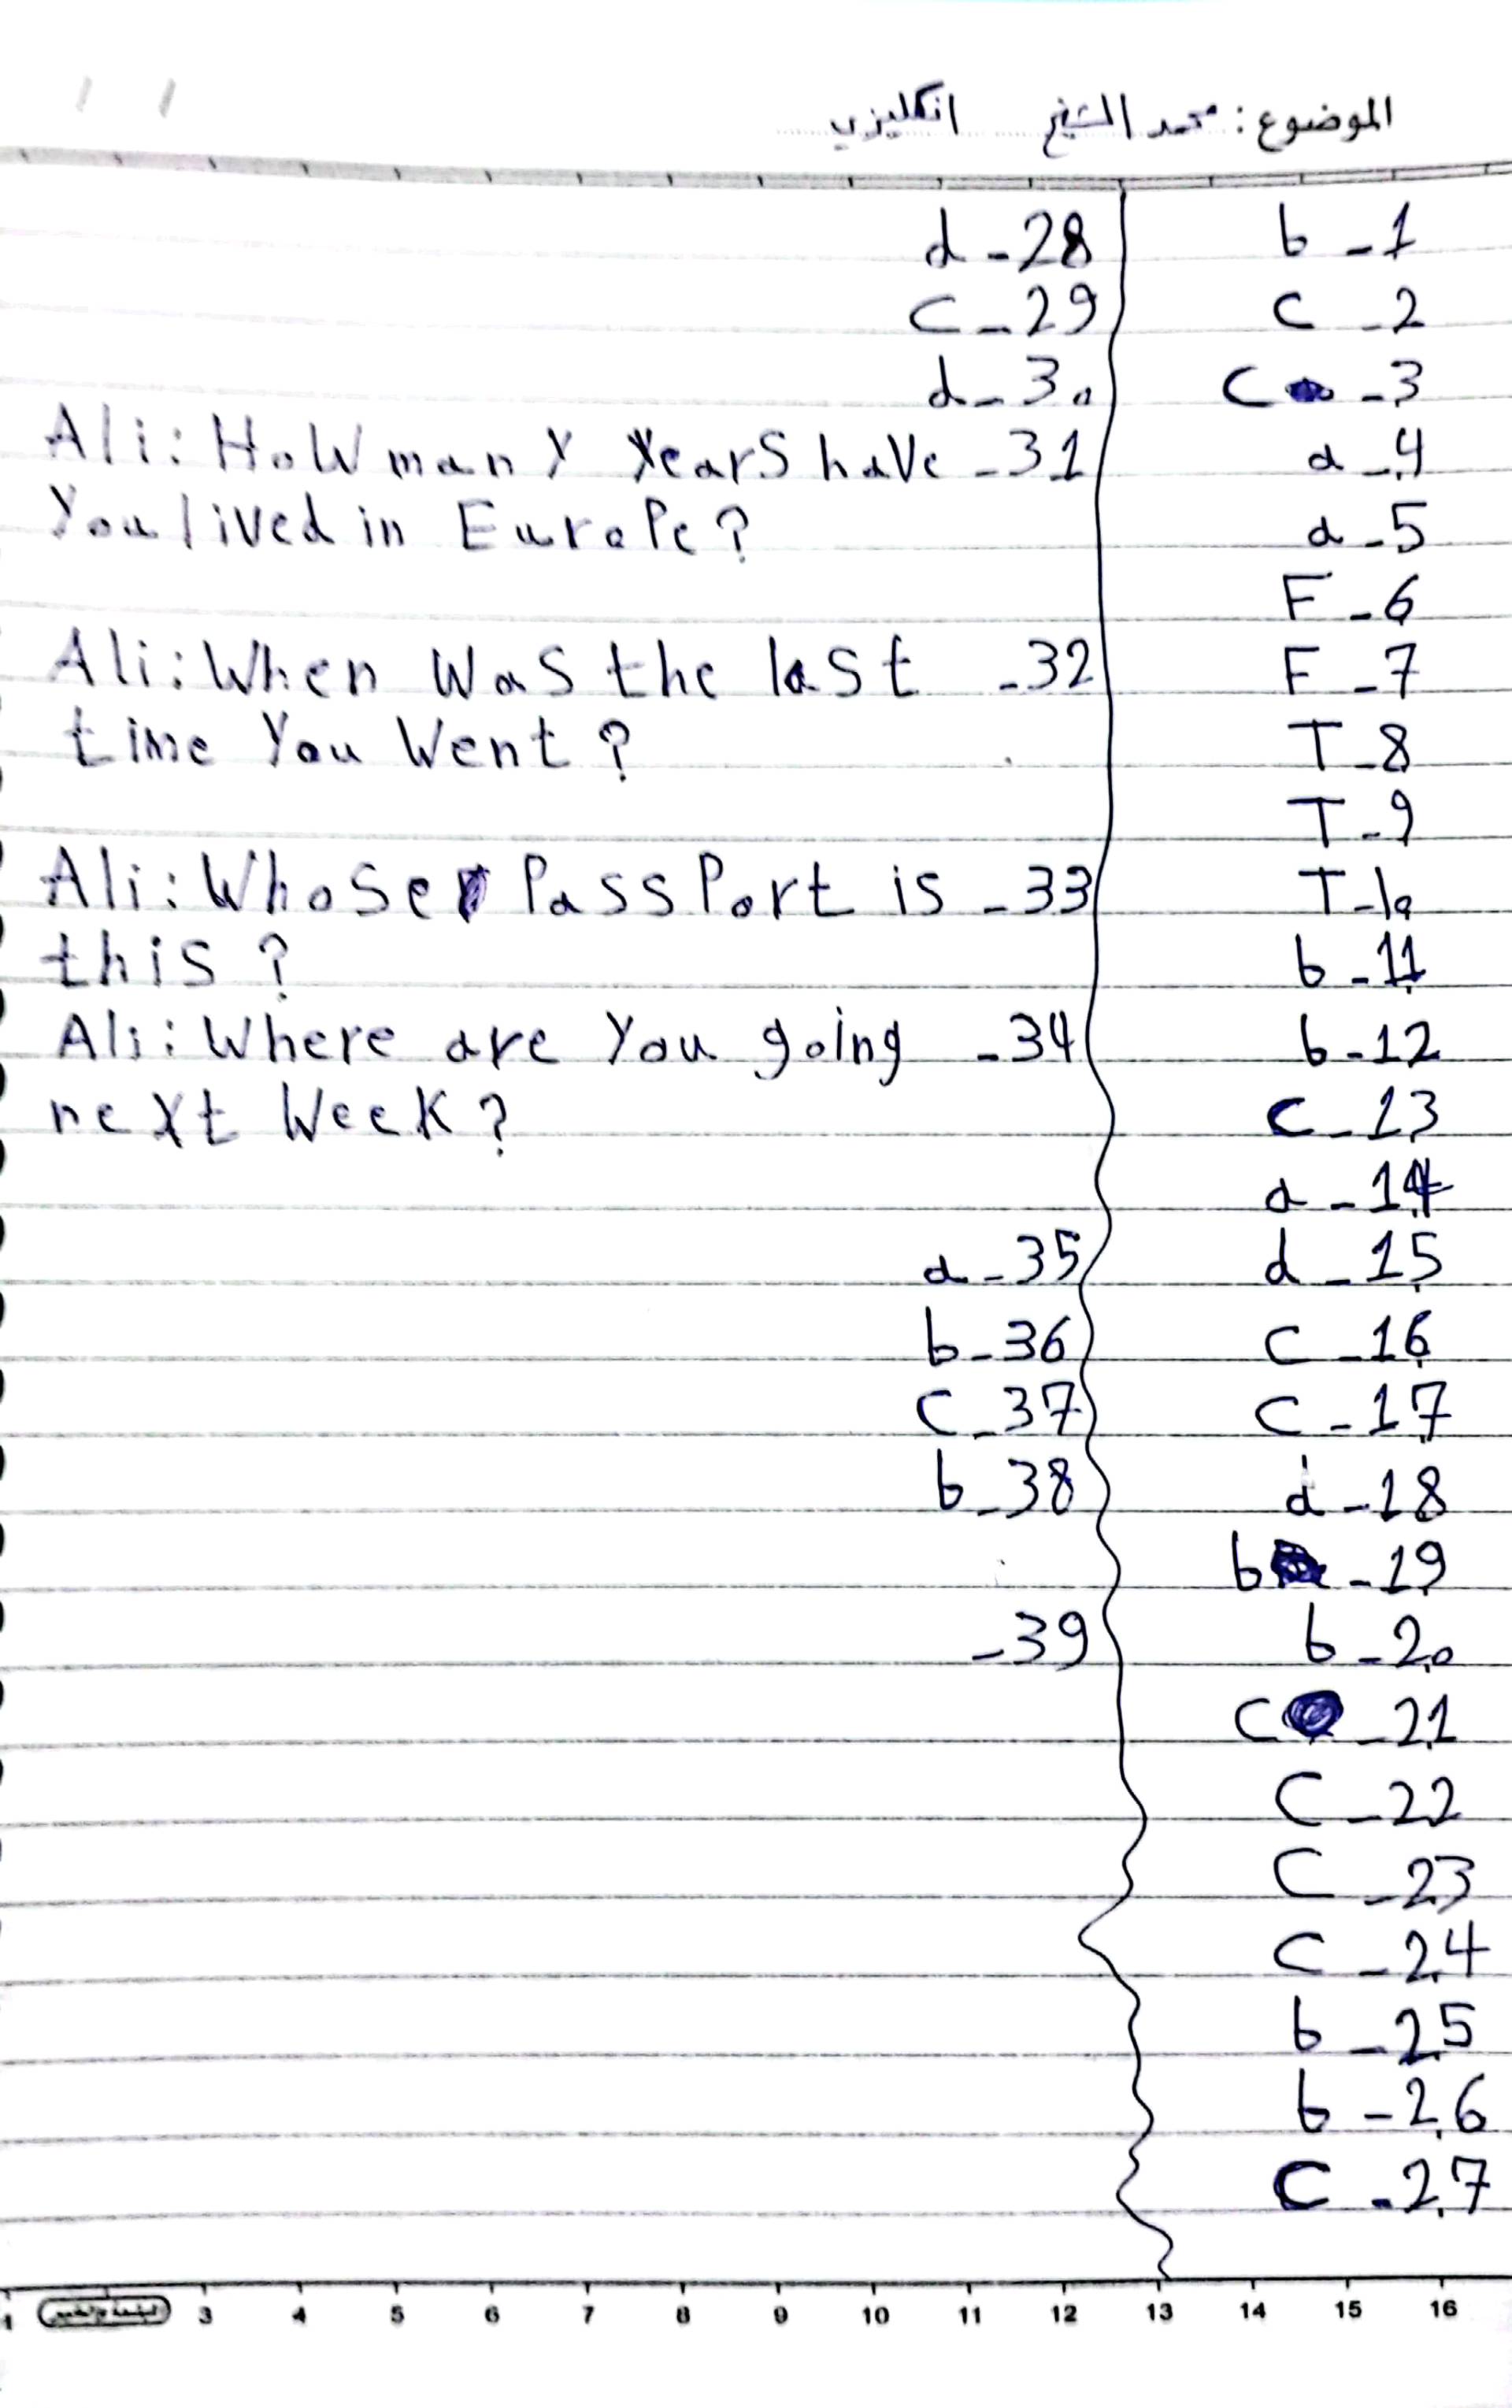 الموضوع: محمد الشيخ انكليزي
b - 1
c - 2
c - 3
a - 4
a - 5
F - 6
F - 7
T - 8
T - 9
T - 10
b - 11
b - 12
c - 13
a - 14
d - 15
c - 16
c - 17
d - 18
b - 19
b - 20
c - 21
C - 22
C - 23
C - 24
b - 25
b - 26
C - 27
d - 28
c - 29
d - 30
Ali: How many years have - 31
you lived in Europe?
Ali: When was the last - 32
time you went?
Ali: Whose PassPort is - 33
this?
Ali: Where are you going - 34
next week?
a - 35
b - 36
c - 37
b - 38
- 39
3 4 5 6 7 8 9 10 11 12 13 14 15 16